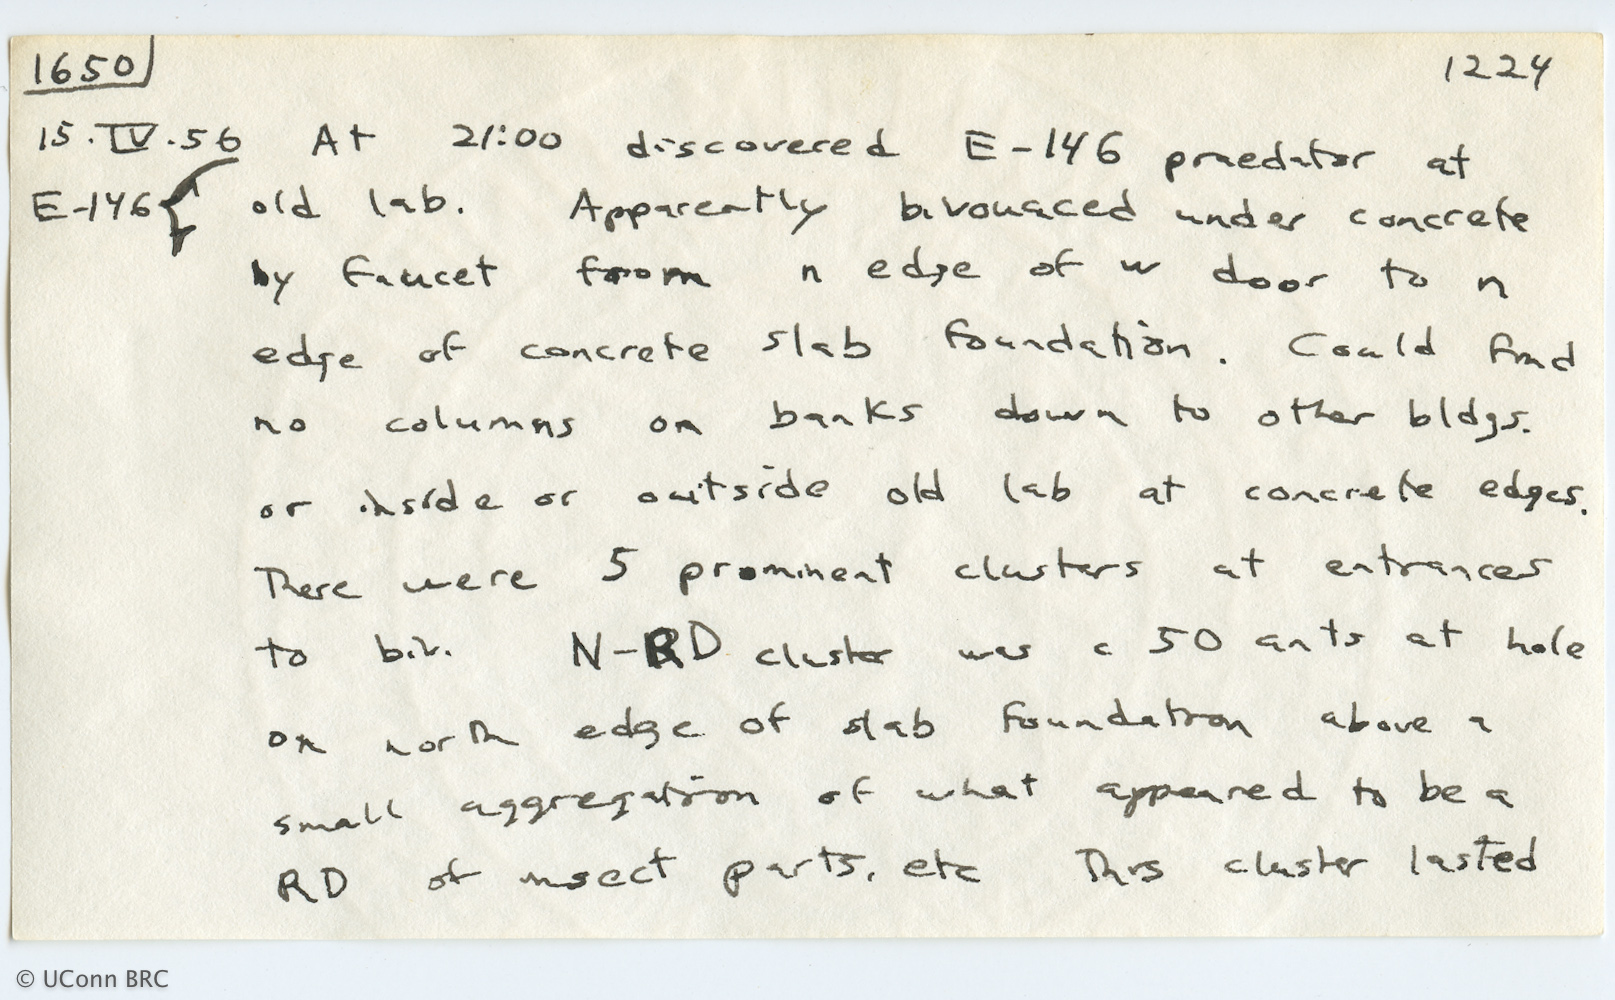 1650 1224
15.IV.56 At 21:00 discovered E-146 praedator at
E-146 old lab. Apparently bivouaced under concrete
by faucet from n edge of w door to n
edge of concrete slab foundation. Could find
no columns on banks down to other bldgs.
or inside or outside old lab at concrete edges.
There were 5 prominent clusters at entrances
to biv. N-RD cluster was c 50 ants at hole
on north edge of slab foundation above a
small aggregation of what appeared to be a
RD of insect parts, etc This cluster lasted
© UConn BRC